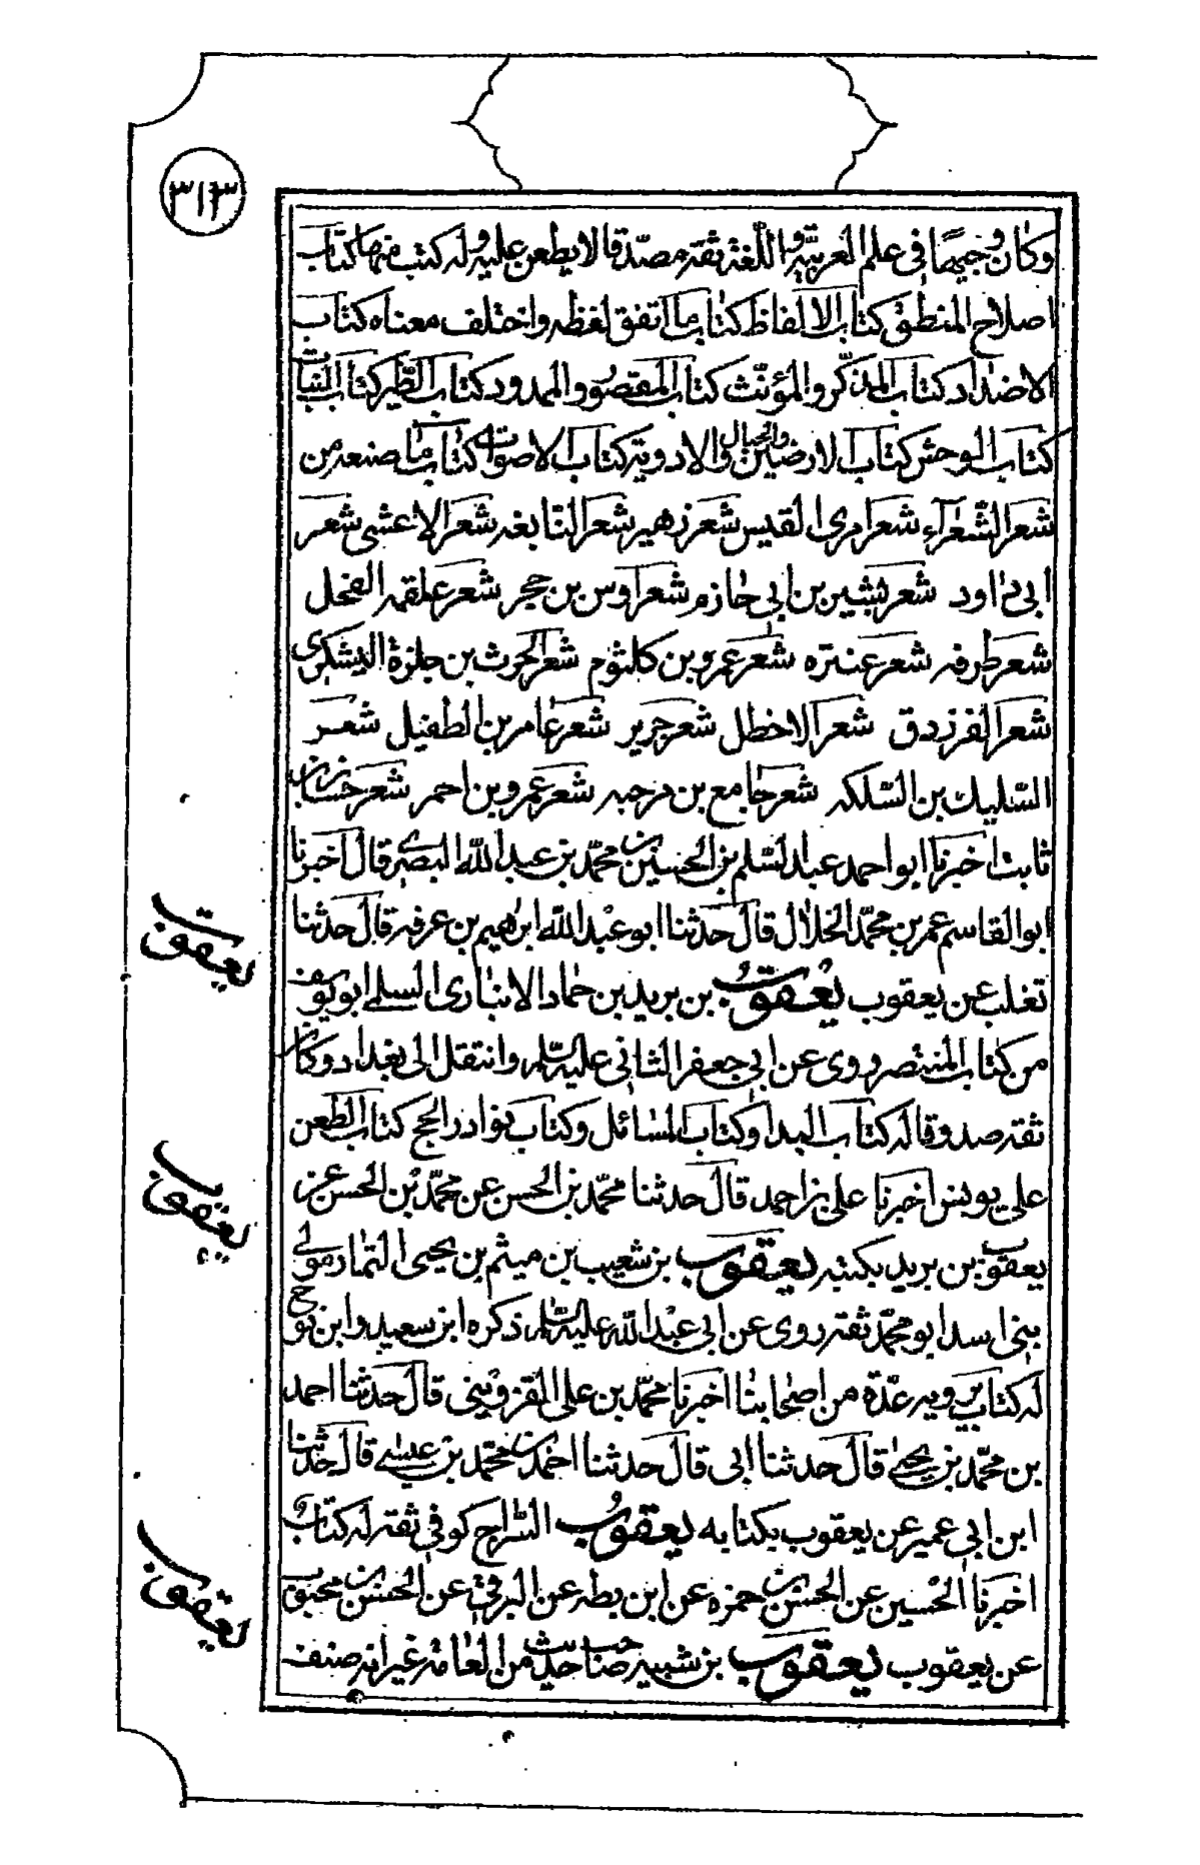 ٣١٣
وكان وجيها في علم العربيّة واللّغة ثقة مصدّقا لا يطعن عليه وله كتب منها كتاب
اصلاح المنطق كتاب الالفاظ كتاب ما اتفق لفظه واختلف معناه كتاب
الاضداد كتاب المذكّر والمؤنّث كتاب المقصور والممدود كتاب الطّير كتاب النبات
كتاب الوحش كتاب الارضين والجبال والاودية كتاب الاصوات كتاب ما صنعه من
شعر الشّعرآء شعر امرى القيس شعر زهير شعر النّابغه شعر الاعشى شعر
ابى داود شعر بشير بن ابي حازم شعر اوس بن حجر شعر علقمه الفحل
شعر طرفه شعر عنتره شعر عمرو بن كلثوم شعر الحرث بن حلزة اليشكرى
شعر الفرزدق شعر الاخطل شعر جرير شعر عامر بن الطفيل شعر
السّليك بن السّلكه شعر جامع بن مرجيه شعر عمرو بن احمر شعر حسان بن
ثابت اخبرنا ابو احمد عبد السّلم بن الحسين بن محمّد بن عبد اللّه البصري قال اخبرنا
ابو القاسم عمر بن محمّد الخلال قال حدثنا ابو عبد اللّه ابرهيم بن عرفه قال حدثنا
تغلب عن يعقوب يعقوب بن يزيد بن حماد الانبارى السلمي ابو يوسف
من كتاب المنتصر روى عن ابي جعفر الثاني عليه السّلم وانتقل الى بغداد وكان
ثقة صدوقا له كتاب البداء وكتاب المسائل وكتاب نوادر الحج كتاب الطعن
على يونس اخبرنا على بن احمد قال حدثنا محمّد بن الحسن عن محمّد بن الحسن عن
يعقوب بن يزيد بكتبه يعقوب بن شعيب بن ميثم بن يحيى التمار مولى
بنى اسد ابو محمّد ثقة روى عن ابي عبد اللّه عليه السّلم ذكره ابن سعيد وابن نوح
له كتاب يرويه عدّة من اصحابنا اخبرنا محمّد بن على القزوينى قال حدثنا احمد
بن محمّد بن يحيى قال حدثنا ابى قال حدثنا احمد بن محمّد بن عيسى قال حدثنا
ابن ابي عمير عن يعقوب بكتابه يعقوب السّراج كوفي ثقة له كتاب
اخبرنا الحسين عن الحسن بن حمزه عن ابن بطه عن البرقي عن الحسن بن محبوب
عن يعقوب يعقوب بن شيبه صاحب حديث من العامّة غير انه صنف
يعقوب
يعقوب
يعقوب